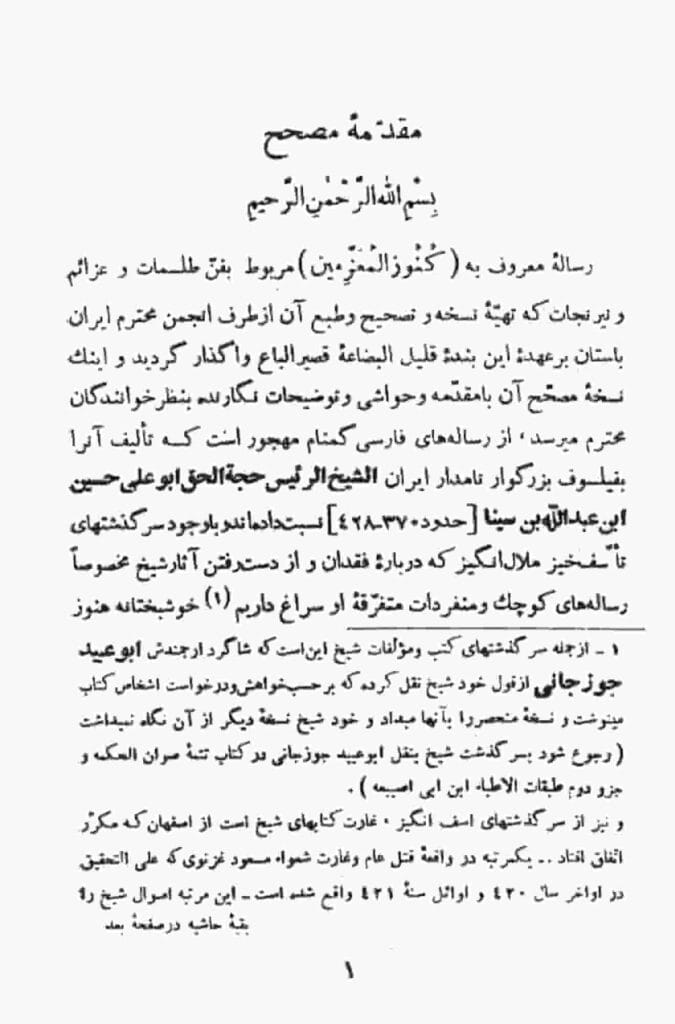 مقدّمهٔ مصحح
بِسْمِ اللّٰهِ الرَّحْمٰنِ الرَّحیمِ
رسالهٔ معروف به (کُنُوزالمُعَزِّمین) مربوط بفنّ طلسمات و عزائم
و نیرنجات که تهیّهٔ نسخه و تصحیح وطبع آن ازطرف انجمن محترم ایران
باستان برعهدهٔ این بندهٔ قلیل البضاعهٔ قصیرالباع واگذار گردید و اینک
نسخهٔ مصحّح آن بامقدّمه وحواشی وتوضیحات نگارنده بنظرخوانندگان
محترم میرسد، از رساله‌های فارسی گمنام مهجور است که تألیف آنرا
بفیلسوف بزرگوار نامدار ایران الشیخ‌الرئیس حجةالحق ابوعلی حسین
ابن عبدالله بن سینا [حدود ۳۷۰-۴۲۸] نسبت‌داده‌اند و باوجود سرگذشتهای
تأسّف‌خیز ملال‌انگیز که دربارهٔ فقدان و از دست‌رفتن آثار شیخ مخصوصاً
رساله‌های کوچک ومنفردات متفرّقهٔ او سراغ داریم (۱) خوشبختانه هنوز
۱ ـ ازجمله سرگذشتهای کتب ومؤلفات شیخ این‌است که شاگرد ارجمندش ابوعبید
جوزجانی ازقول خود شیخ نقل کرده که برحسب‌خواهش‌ودرخواست اشخاص کتاب
مینوشت و نسخهٔ منحصررا بآنها میداد و خود شیخ نسخهٔ دیگر از آن نگاه نمیداشت
( رجوع شود بسرگذشت شیخ بنقل ابوعبید جوزجانی درکتاب تتمهٔ صوان الحکمه و
جزو دوم طبقات الاطباء ابن ابی اصیبعه ) .
و نیز از سرگذشتهای اسف انگیز ، غارت کتابهای شیخ است از اصفهان‌که مکرّر
اتفاق افتاد .ـ یکمرتبه در واقعهٔ قتل عام وغارت شعواء مسعود غزنوی که علی التحقیق
در اواخر سال ۴۲۰ و اوائل سنهٔ ۴۲۱ واقع شده است ـ این مرتبه اموال شیخ را
بقیهٔ حاشیه درصفحهٔ بعد
۱